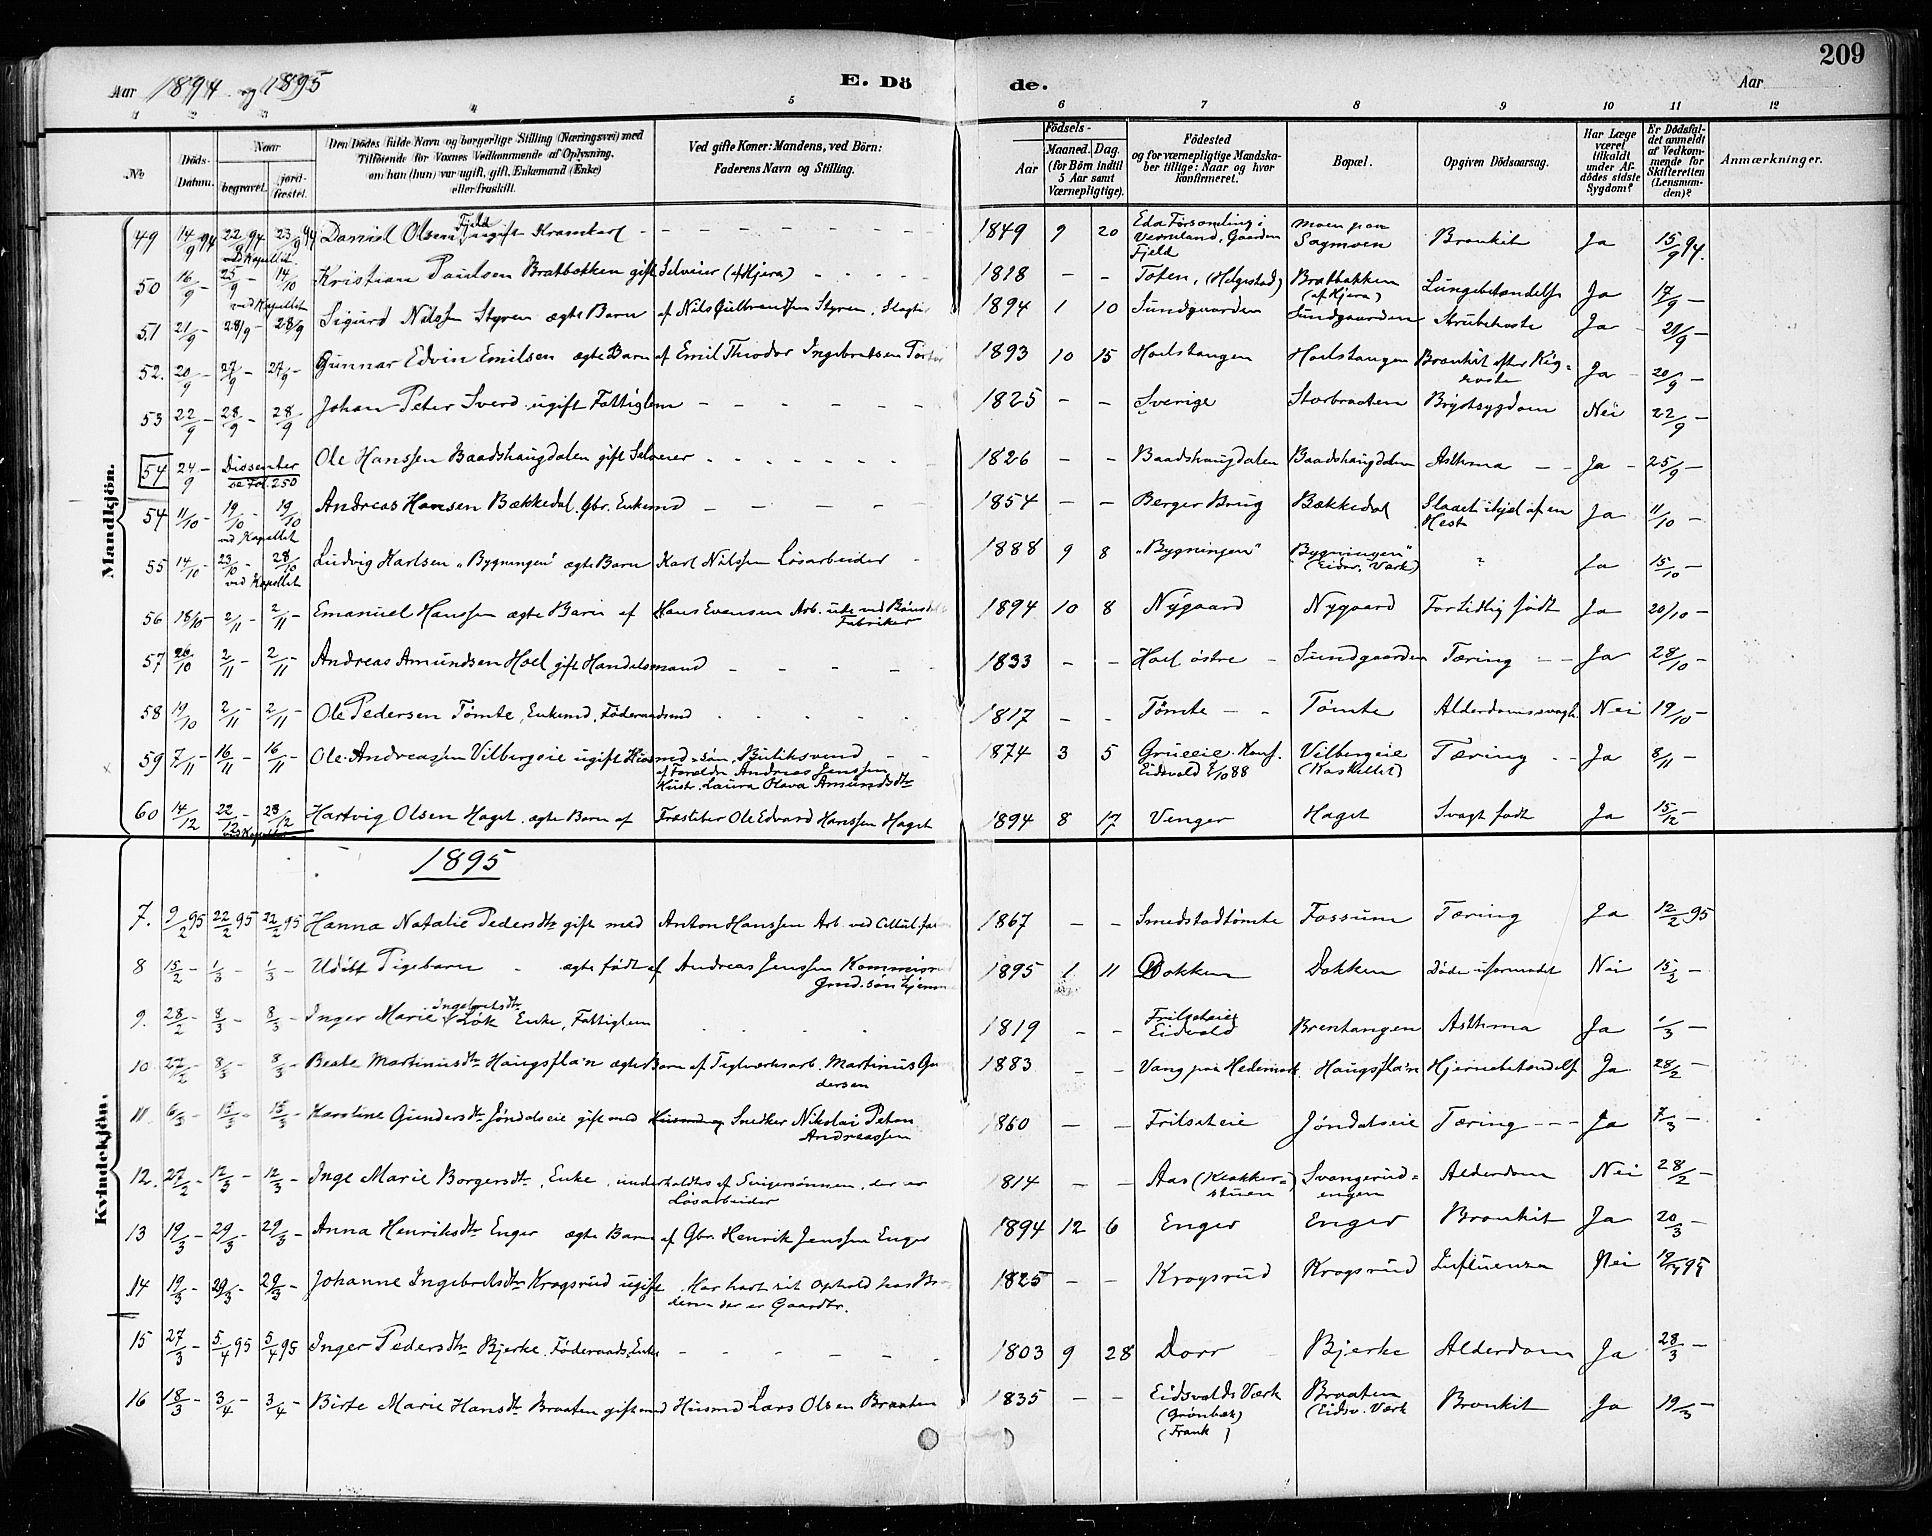 209
Aar 1894 og 1895 E. Dö de. Aar
1 2 3 4 5 6 7 8 9 10 11 12
No Döds-Datum. Naar begravet. jordfæstet. Den Dödes fulde Navn og borgerlige Stilling (Næringsvei) med Tilföiende for Voxnes Vedkommende af Oplysning, om han (hun) var ugift, gift, Enkemand (Enke) eller fraskilt. Ved gifte Koner: Mandens, ved Börn: Faderens Navn og Stilling. Födsels- Aar Maaned. Dag. (for Börn indtil 5 Aar samt Værnepligtige). Födested og for værnepligtige Mandskaber tillige: Naar og hvor konfirmeret. Bopæl. Opgiven Dödsaarsag. Har Læge været tilkaldt under Afdödes sidste Sygdom? Er Dödsfaldet anmeldt af Vedkommende for Skifteretten (Lensmanden)? Anmærkninger.
Mandkjön.
49 14/9 94 22/9 94 ved Kapellet 23/9 94 Daniel Olsen Fjeld ugift Kramkarl - - - 1849 9 20 Eda Forsamling i Vermland, Gaarden Fjeld Moen paa Sagmoen Bronkit Ja 15/9 94.
50 16/9 - 25/9 - ved Kapellet 14/10 Kristian Paulsen Bratbakken gift Selveier (af Hjera) - - - 1818 - - Toten, (Helgestad) Bratbakken (af Hjera) Lungebetændelse Ja 17/9 -
51 21/9 - 28/9 - 28/9 Sigurd Nilssen Styren ægte Barn af Nils Gulbrandsen Styren, Slagter 1894 1 10 Sundgaarden Sundgaarden Strubehoste Ja - 21/9 -
52. 20/9 - 27/9 - 27/9 - Gunnar Edvin Emilsen ægte Barn af Emil Theodor Ingebretsen 1893 10 15 Hoelstangen Hoelstangen Bronkit efter Kighoste Ja - 20/9 -
53 22/9 - 28/9 - 28/9 Johan Peter Sverd ugift Fattiglem - - - 1825 - - Sverige Storbraaten Brystsygdom Nei 22/9 -
54 24/9 - Dissenter se Fol. 250 Ole Hanssen Baadshaugdalen gift Selveier - - - 1826 - - Baadshaugdalen Baadshaugdalen Asthma - - Ja - 25/9 -
54 11/10 - 19/10 - ved Kapellet 19/10 Andreas Hansen Bækkedal. Gbr. Enkemd - - - 1854 - - Berger Brug Bækkedal Slaaet ihjel af en Hest Ja 11/10 -
55 14/10 - 23/10 - ved Kapellet 28/10 Ludvig Karlsen "Bygningen" ægte Barn Karl Nilssen Løsarbeider - 1888 9 8 "Bygningen" Bygningen" (Eidsv. Værk) " Ja 15/10 -
56 18/10 - 2/11 - 2/11 Emanuel Hanssen ægte Barn af Hans Evensen Arb. ude ved Fabriker 1894 10 8 Nygaard Nygaard Fortidlig født Ja 20/10 -
57 26/10 2/11 - 2/11 - Andreas Amundsen Hoel gift Handelsmand - - - 1833 - - Hoel østre - Sundgaarden Tæring - - Ja 28/10 -
58 19/10 2/11 - 2/11 - Ole Pedersen Tømte, Enkemd, Føderaadsmd - - - 1817 - - Tømte - - Tømte Alderdomssvagh. Nei 19/10 -
59 7/11 16/11 - 16/11 - Ole Andreassen Vilbergeie ugift Husmd-søn, Butiksvend - - af Forældre Andreas Jenssen Hustr. Laura Olava Amundsdtr 1874 3 5 Grueeie. Konf. Eidsvold 7/10 88 Vilbergeie (Kaskellet) Tæring - - Ja 8/11 -
60 14/12 22/12 ved Kapellet 23/12 Hartvig Olsen Haget ægte Barn af Træsliber Ole Edvard Hanssen Haget 1894 8 17 Venger Haget Svagt født Ja 15/12 -
1895
Kvindekjön.
7. 9/2 95 22/2 95 22/2 95 Hanna Natalie Pedersdtr gift med Anton Hanssen Arb. ved Cellul. 1867 - - Smedstadtømte Fossum Tæring Ja 12/2 95
8 15/2 - 1/3 - 1/3 - Udøbt Pigebarn - ægte født af Andreas Jenssen 1895 1 11 Dokken Dokken Døde uformodet Nei 15/2 -
9. 28/2 - 8/3 - 8/3 - Inger Marie Ingebretsdtr Løk Enke, Fattiglem - - - 1819 - - Frilseteie Eidsvold Brentangen Asthma Ja 1/3 -
10 27/2 - 8/3 - 8/3 - Beate Martinusdtr Haugsfla'n ægte Barn af Teglværksarb. Martinus Gudersen 1883 - - Vang paa Hedemark Haugsfla'n Hjernebetændelse Ja 28/2 -
11 6/3 - 15/3 - 15/3 - Karoline Gundersdtr Jøndalseie gift med Husmd og Snedker Nikolai Petan Andreassen 1860 - - Frilseteie Jøndalseie Tæring - - - Ja 7/3 -
12. 27/2 - 12/3 - 12/3 - Inge Marie Borgersdtr, Enke, underholdtes af Svigersønnen, der er Løsarbeider 1814 - - Aas (Klokkerstuen) Svangerudengen Alderdom Nei 28/2 -
13 19/3 - 29/3 - 29/3 - Anna Henriksdtr Enger ægte Barn af Gbr. Henrik Jenssen Enger 1894 12 6 Enger Enger Bronkit Ja 20/3 -
14 19/3 - 29/3 - 29/3 - Johanne Ingebretsdtr Krogsrud ugift Har havt sit Ophold hos Broderen der er Gaardbr. 1825 - - Krogsrud Krogsrud Influenza Nei 95
15 27/3 - 5/4 95 5/4 95 Inger Pedersdtr Bjerke, Føderaads,Enke - - - 1803 9 28 Dorr Bjerke Alderdom Ja 28/3 -
16 18/3 - 3/4 - 3/4 - Birte Marie Hansdtr Braaten gift med Husmd Lars Olsen Braaten 1835 - - Eidsvolds Værk (Grønbæk) (Frank) Braaten (Eidsv. Værk Bronkit Ja 19/3 -